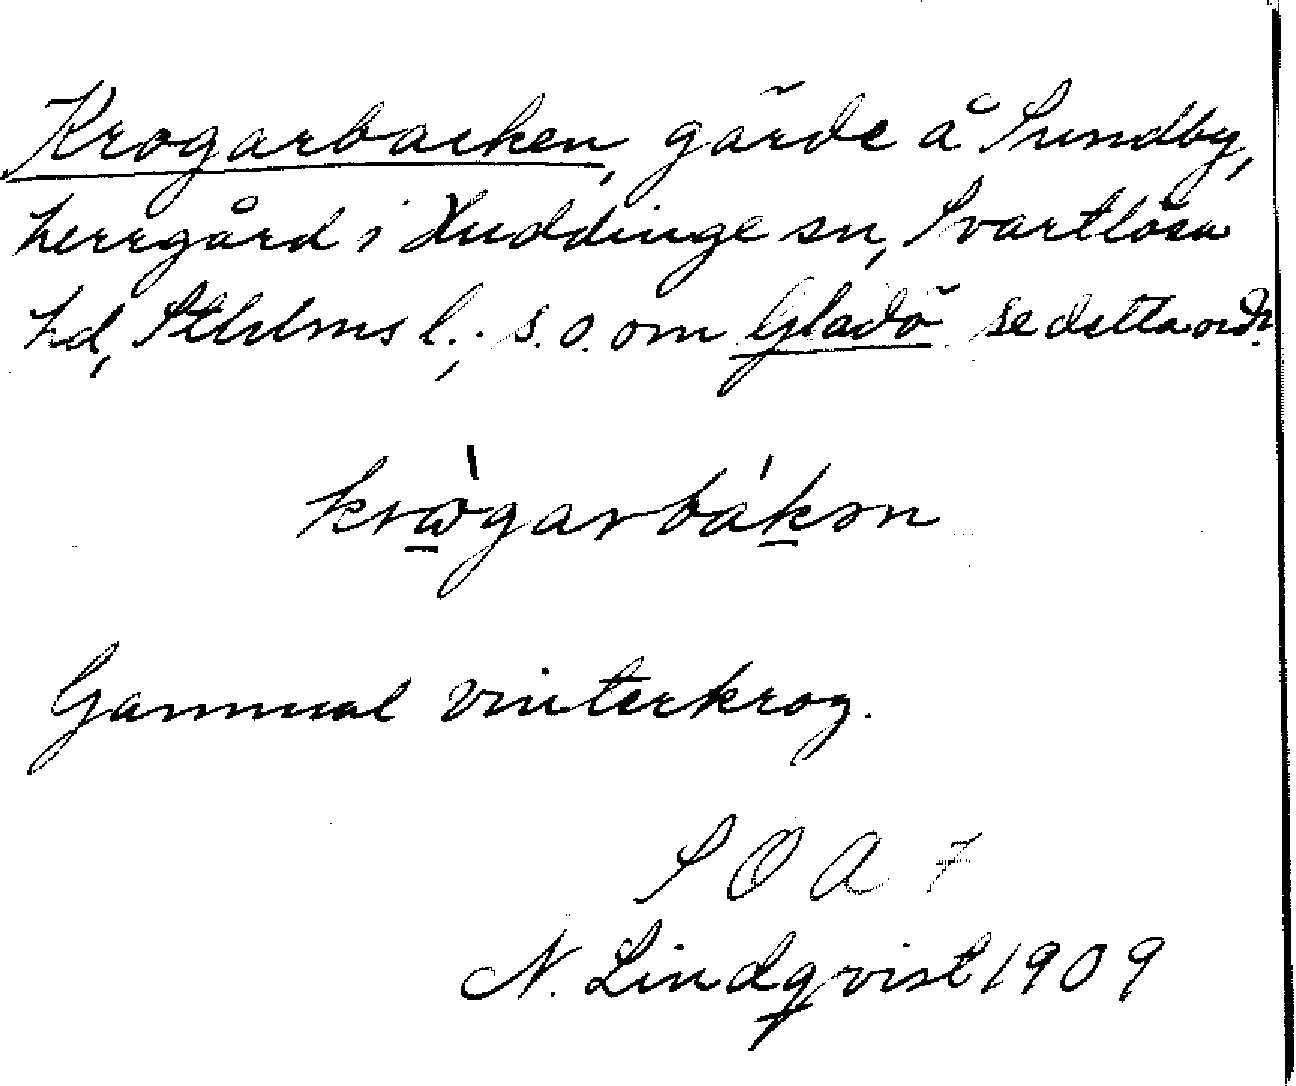 Krogarbacken, gärde å Sundby,
herrgård i Huddinge sn, Svartlösa
hd, Sthlms l.; s.o. om Gladö se detta ord.
Gammal vinterkrog.
S O A 7
N. Lindqvist 1909